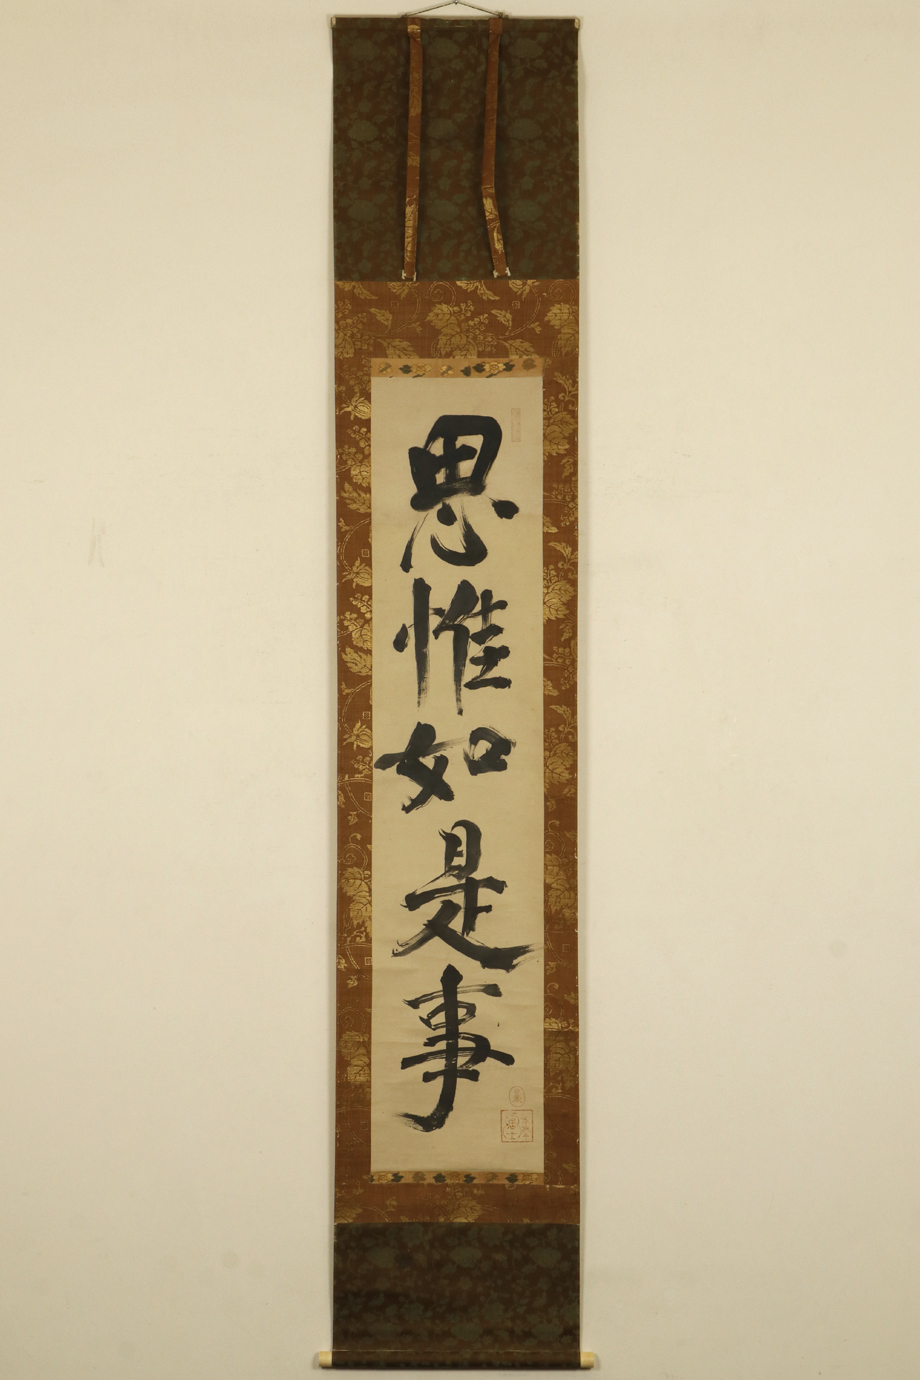 思惟如是事